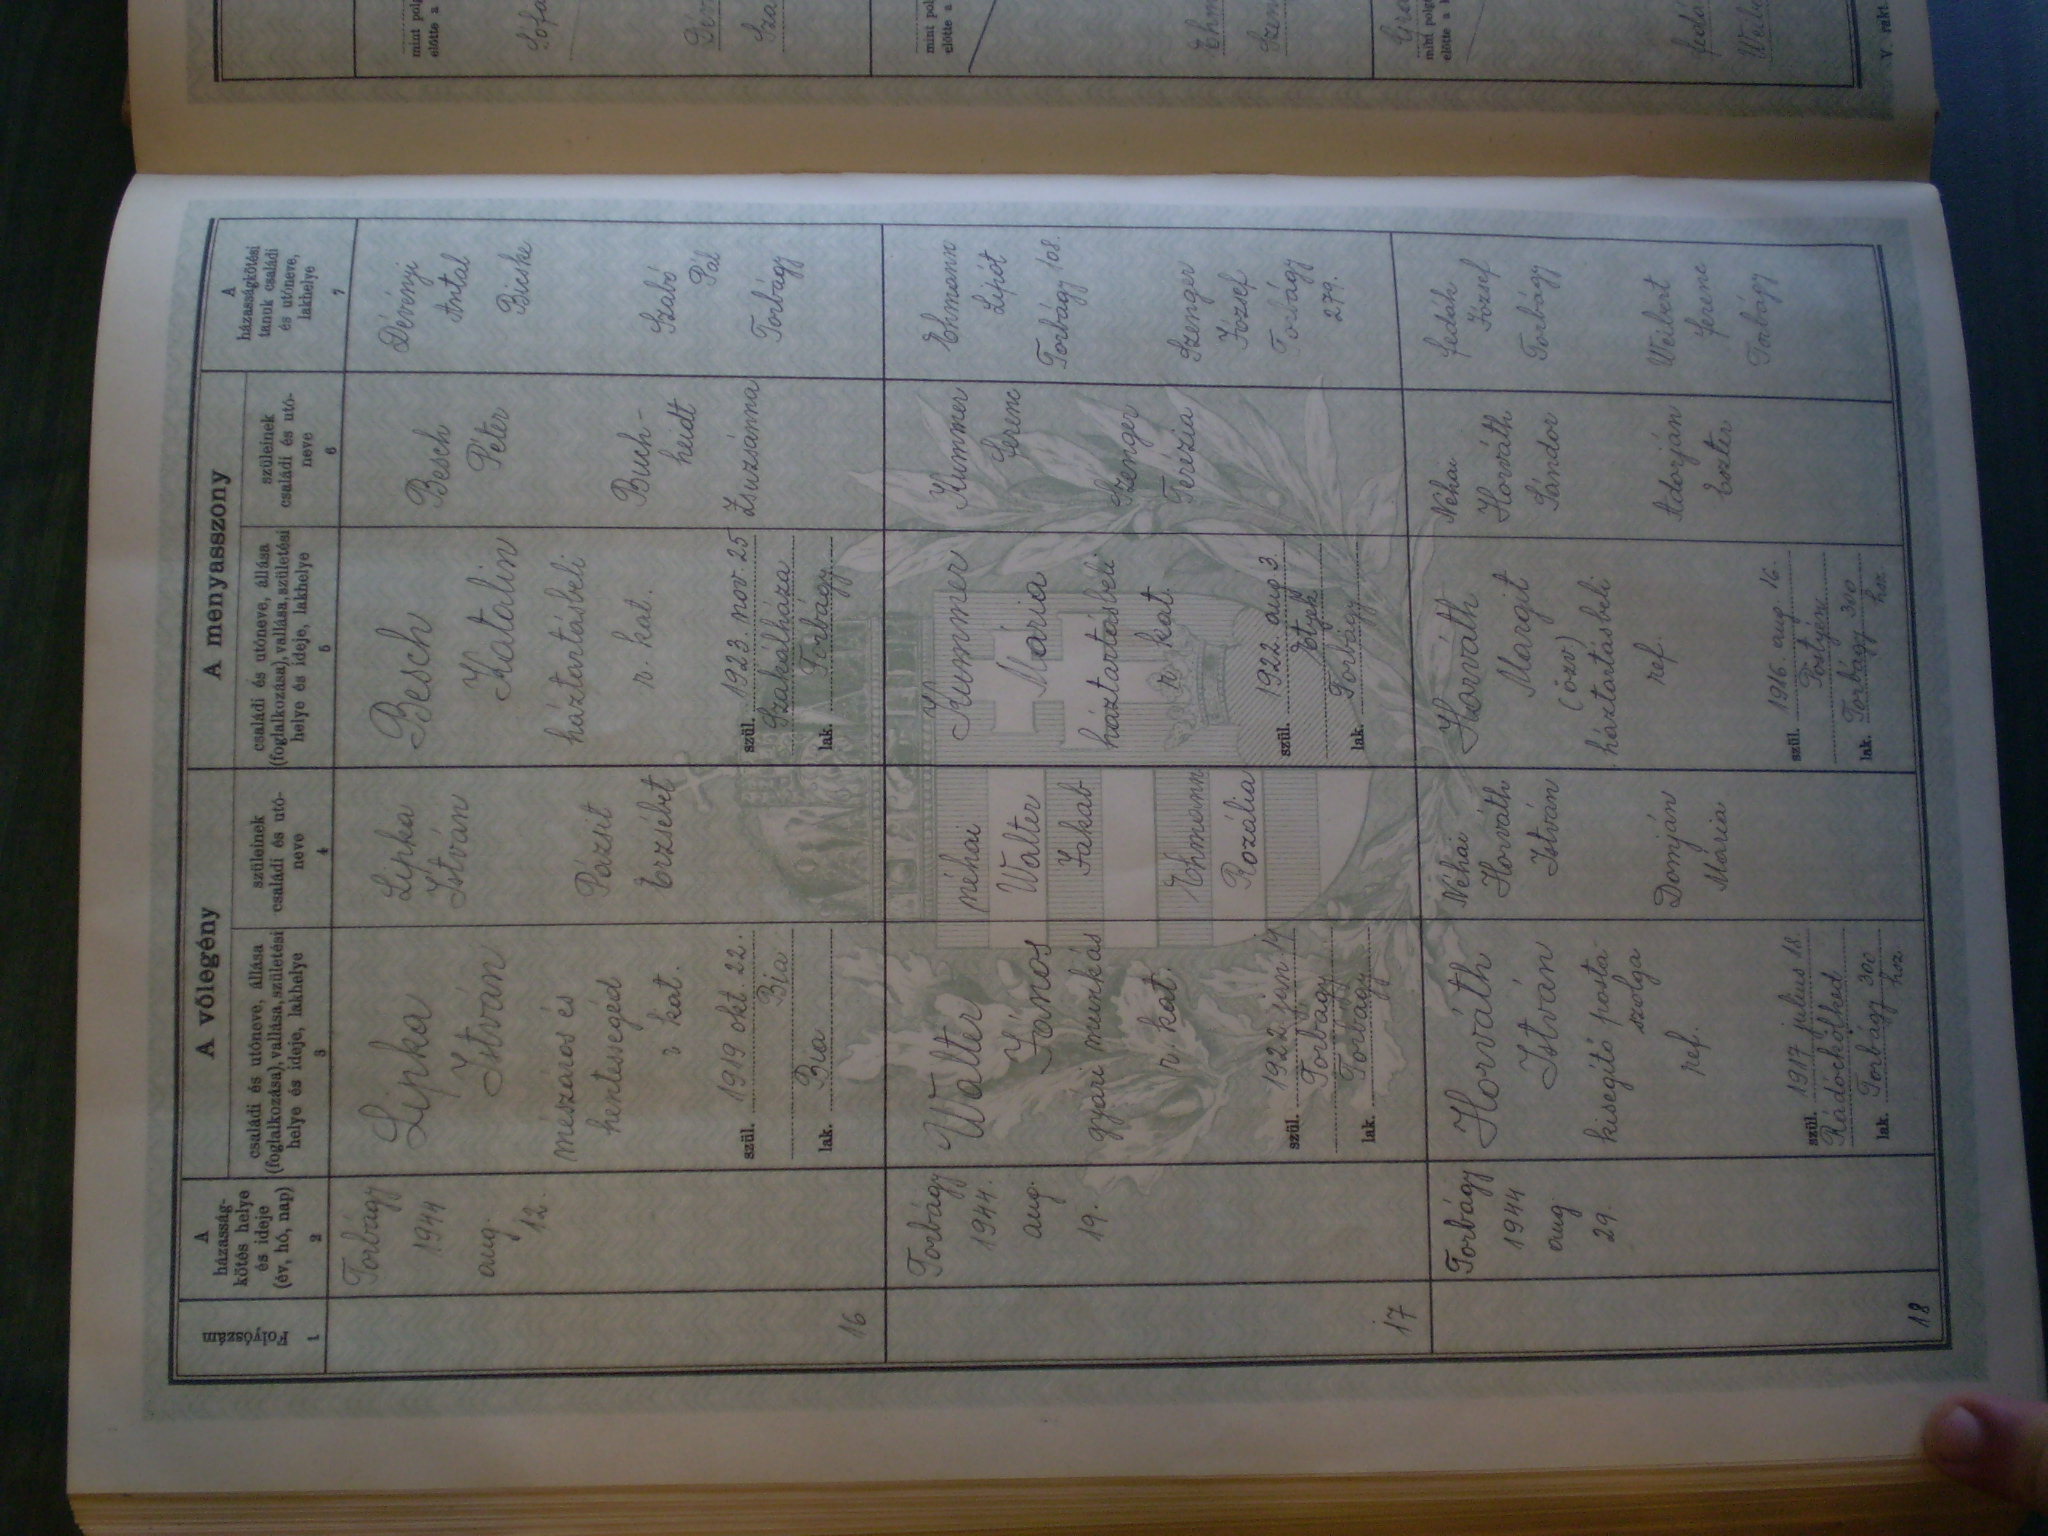 A vőlegény
A menyasszony
Folyószám
1
A
házasság-
kötés helye
és ideje
(év, hó, nap)
2
családi és utóneve, állása
(foglalkozása), vallása, születési
helye és ideje, lakhelye
3
szüleinek
családi és utó-
neve
4
családi és utóneve, állása
(foglalkozása), vallása, születési
helye és ideje, lakhelye
5
szüleinek
családi és utó-
neve
6
A
házasságkötési
tanuk családi
és utóneve,
lakhelye
7
16
Torbágy
1944
aug.
12.
Lipka
István
mészáros és
hentessegéd
r. kat.
szül. 1919 okt. 22.
Bia
lak. Bia
Lipka
István
Pázsit
Erzsébet
Besch
Katalin
háztartásbeli
r. kat.
szül. 1923. nov. 25
Szakálháza
lak. Torbágy
Besch
Péter
Buch-
heidt
Zsuzsánna
Dévényi
Antal
Bicske
Szabó
Pál
Torbágy
17
Torbágy
1944.
aug.
19.
Walter
János
gyári munkás
r. kat.
szül. 1922 jan 14
Torbágy
lak. Torbágy
néhai
Walter
Jakab
Ehmann
Rozália
Kummer
Mária
háztartásbeli
r. kat.
szül. 1922. aug 3.
Etyek
lak. Torbágy
Kummer
Ferenc
Szenger
Terézia
Ehmann
Lipót
Torbágy 108.
Szenger
József
Torbágy
279.
18
Torbágy
1944
aug
29.
Horváth
István
kisegítő posta-
szolga
ref.
szül. 1917 julius 18.
Rádóckölked
lak. Torbágy 300
hsz.
Néhai
Horváth
István
Domján
Mária
Horváth
Margit
(özv)
háztartásbeli
ref.
szül. 1916. aug 16.
lak. Torbágy 300
hsz.
Néhai
Horváth
Sándor
Adorján
Eszter
Fedák
József
Torbágy
Weibert
Ferenc
Torbágy
mint polg
előtte a
mint pol
előtte a
mint polg
előtte a
V. rakt.